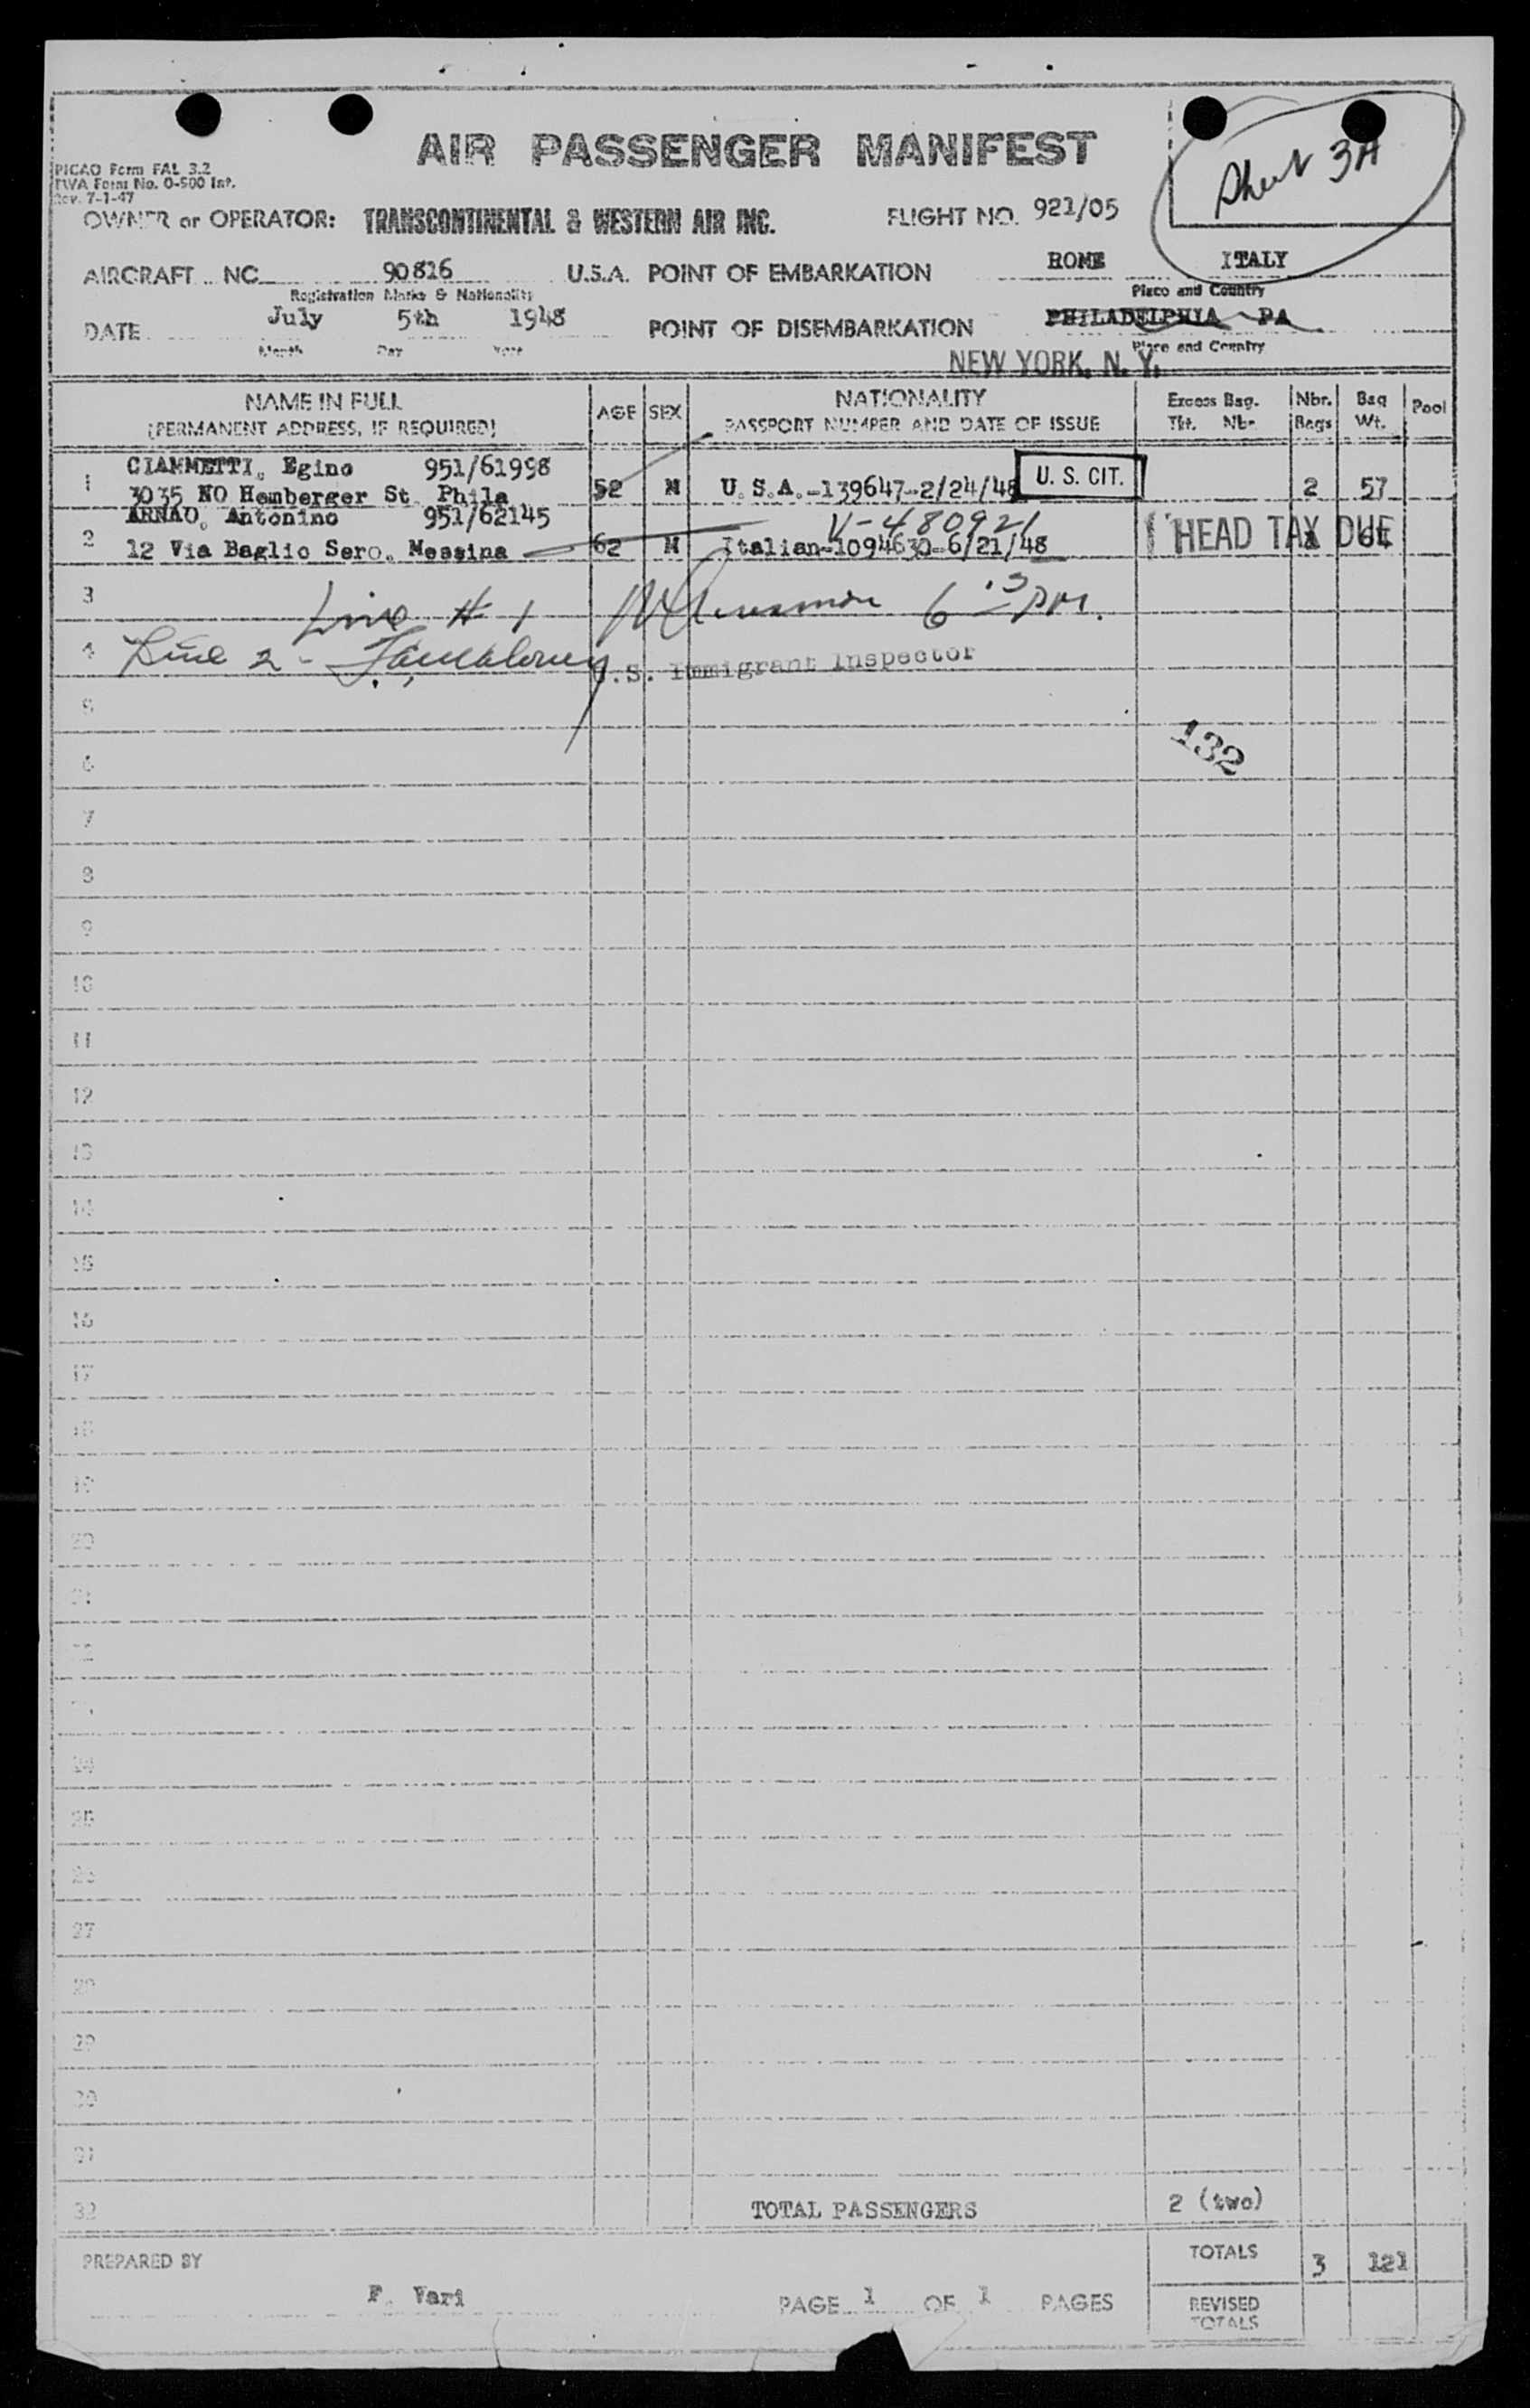 AIR PASSENGER MANIFEST
Sheet 3A
PICAO Form FAL 3.2
TWA Form No. O-500 Int.
Rev. 7-1-47
OWNER or OPERATOR: TRANSCONTINENTAL & WESTERN AIR INC. FLIGHT NO. 921/05
AIRCRAFT NC 90816 U.S.A. POINT OF EMBARKATION ROME ITALY
Registration Marks & Nationality Place and Country
DATE July 5th 1948 POINT OF DISEMBARKATION PHILADELPHIA PA
Month Day Year Place and Country
NEW YORK, N. Y.
NAME IN FULL AGE SEX NATIONALITY Excess Bag. Nbr. Bag Pool
(PERMANENT ADDRESS, IF REQUIRED) PASSPORT NUMBER AND DATE OF ISSUE Tkt. Nbr. Bags Wt.
CIAMMETTI, Egino 951/61998
1 3035 NO Hemberger St. Phila 52 M U.S.A.-139647-2/24/48 U. S. CIT. 2 57
ARNAO, Antonino 951/62145 V-480921
2 12 Via Baglio Sero, Messina 62 M Italian-1094630-6/21/48 HEAD TAX DUE
3 Line # 1
4 Line 2 -
U.S. Immigrant Inspector
5
132
6
7
8
9
10
11
12
13
14
15
16
17
18
19
20
21
22
24
25
26
27
28
29
30
31
32 TOTAL PASSENGERS 2 (two)
PREPARED BY TOTALS 3 121
F. Vari PAGE 1 OF 1 PAGES REVISED
TOTALS